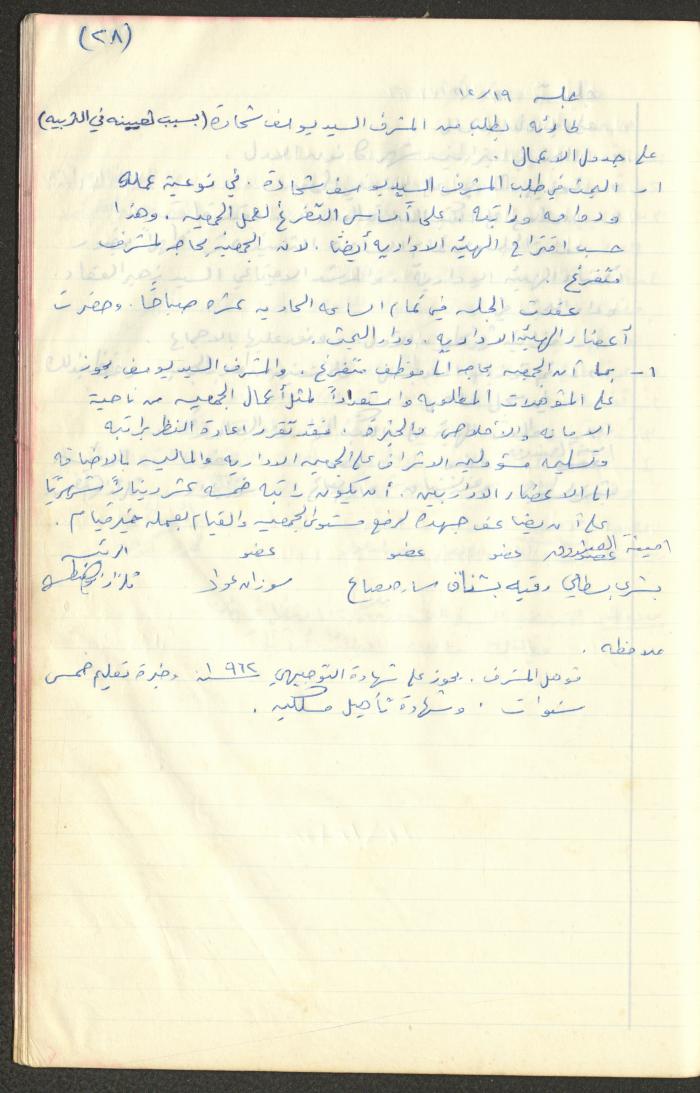 (٢٨)
جلسة ١٩/١٢
طارئه بطلب من المشرف السيد يوسف شحادة (بسبب تعيينه في التربيه)
على جدول الاعمال .
١- البحث في طلب المشرف السيد يوسف شحادة . في نوعية عمله
ودوامه وراتبه . على أساس التفرغ لعمل الجمعيه . وهذا
حسب اقتراح الهيئه الاداريه أيضًا . لان الجمعية بحاجه لمشرف
متفرغ
عقدت الجلسه في تمام الساعه الحاديه عشره صباحًا . وحضرت
أعضاء الهيئه الاداريه . ودار البحث .
١- بما أن الجمعيه بحاجه الى موظف متفرغ . والمشرف السيد يوسف يحوز
على المؤهلات المطلوبه واستعداداً لمثل أعمال الجمعيه من ناحية
الامانه والأخلاص والخبره . فقد تقرر اعادة النظر براتبه
وتسليمه مسؤوليه الاشراف على الجمعيه الاداريه والماليه بالاضافه
الى الاعضاء الاداريين . أن يكون راتبه خمسه عشر دينارًا شهريًا
على أن يضاعف جهده لرفع مستوى الجمعيه والقيام بعمله خير قيام .
امينة الصندوق عضو عضو عضو الرئيسه
بشرى بسطامي رقيه بشناق ساره صباح سوزان عواد
ملاحظه .
مؤهل المشرف . يحوز على شهادة التوجيهي سنة ١٩٦٢ وخبرة تعليم خمس
سنوات . وشهادة تأهيل مسلكيه .